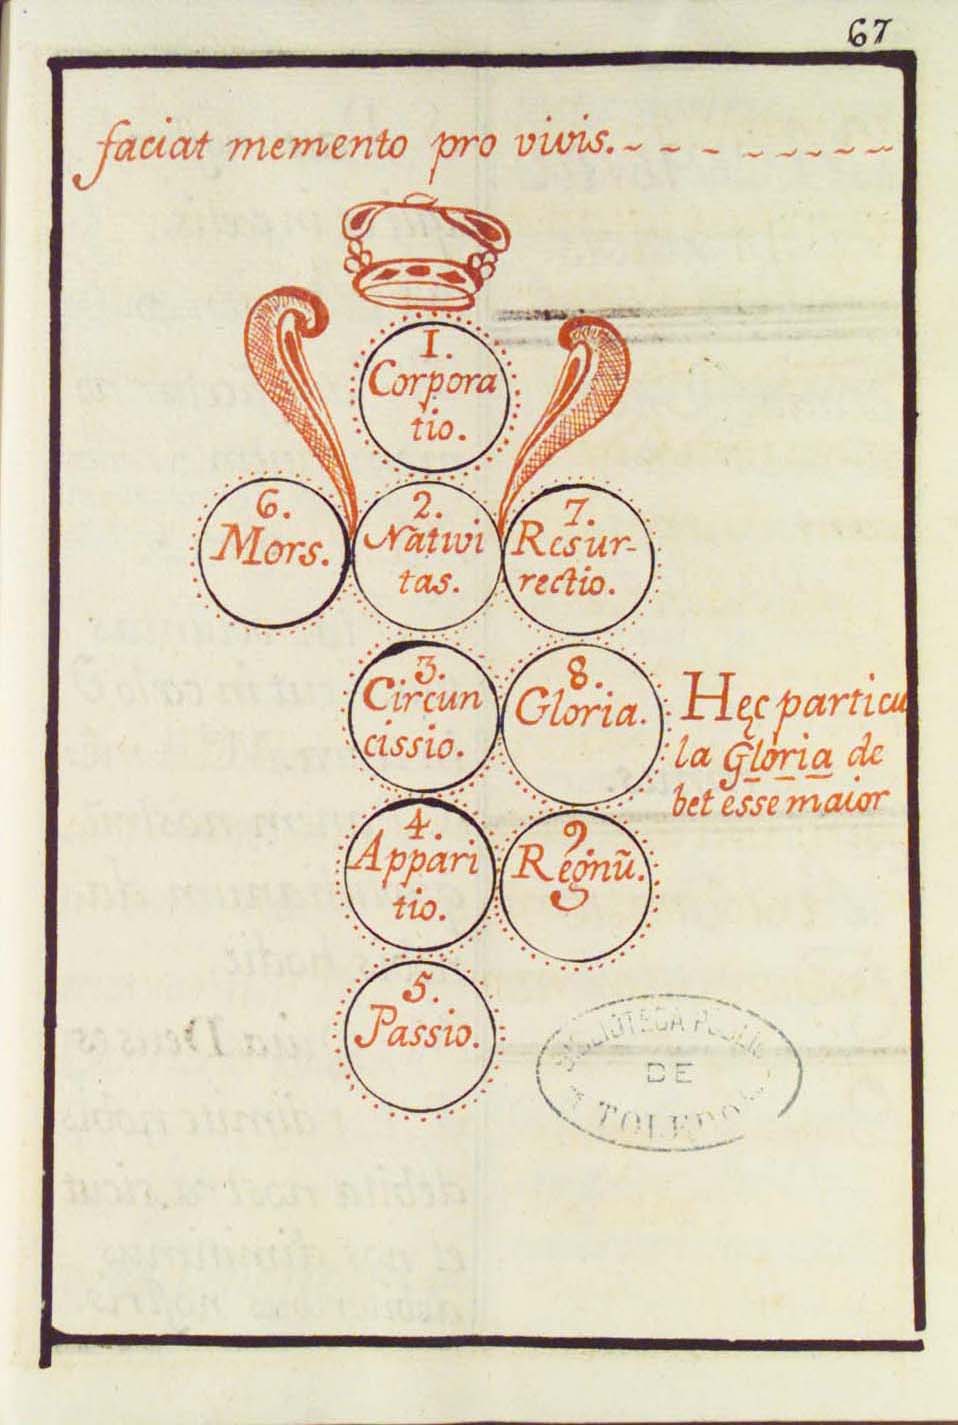 67
faciat memento pro vivis.
1.
Corpora
tio.
6.
Mors.
2.
Nativi
tas.
7.
Resur-
rectio.
3.
Circun
cissio.
8.
Gloria.
Hęc particu
la Gloria de
bet esse maior
4.
Appari
tio.
9.
Regnũ.
5.
Passio.
BIBLIOTECA
DE
TOLEDO